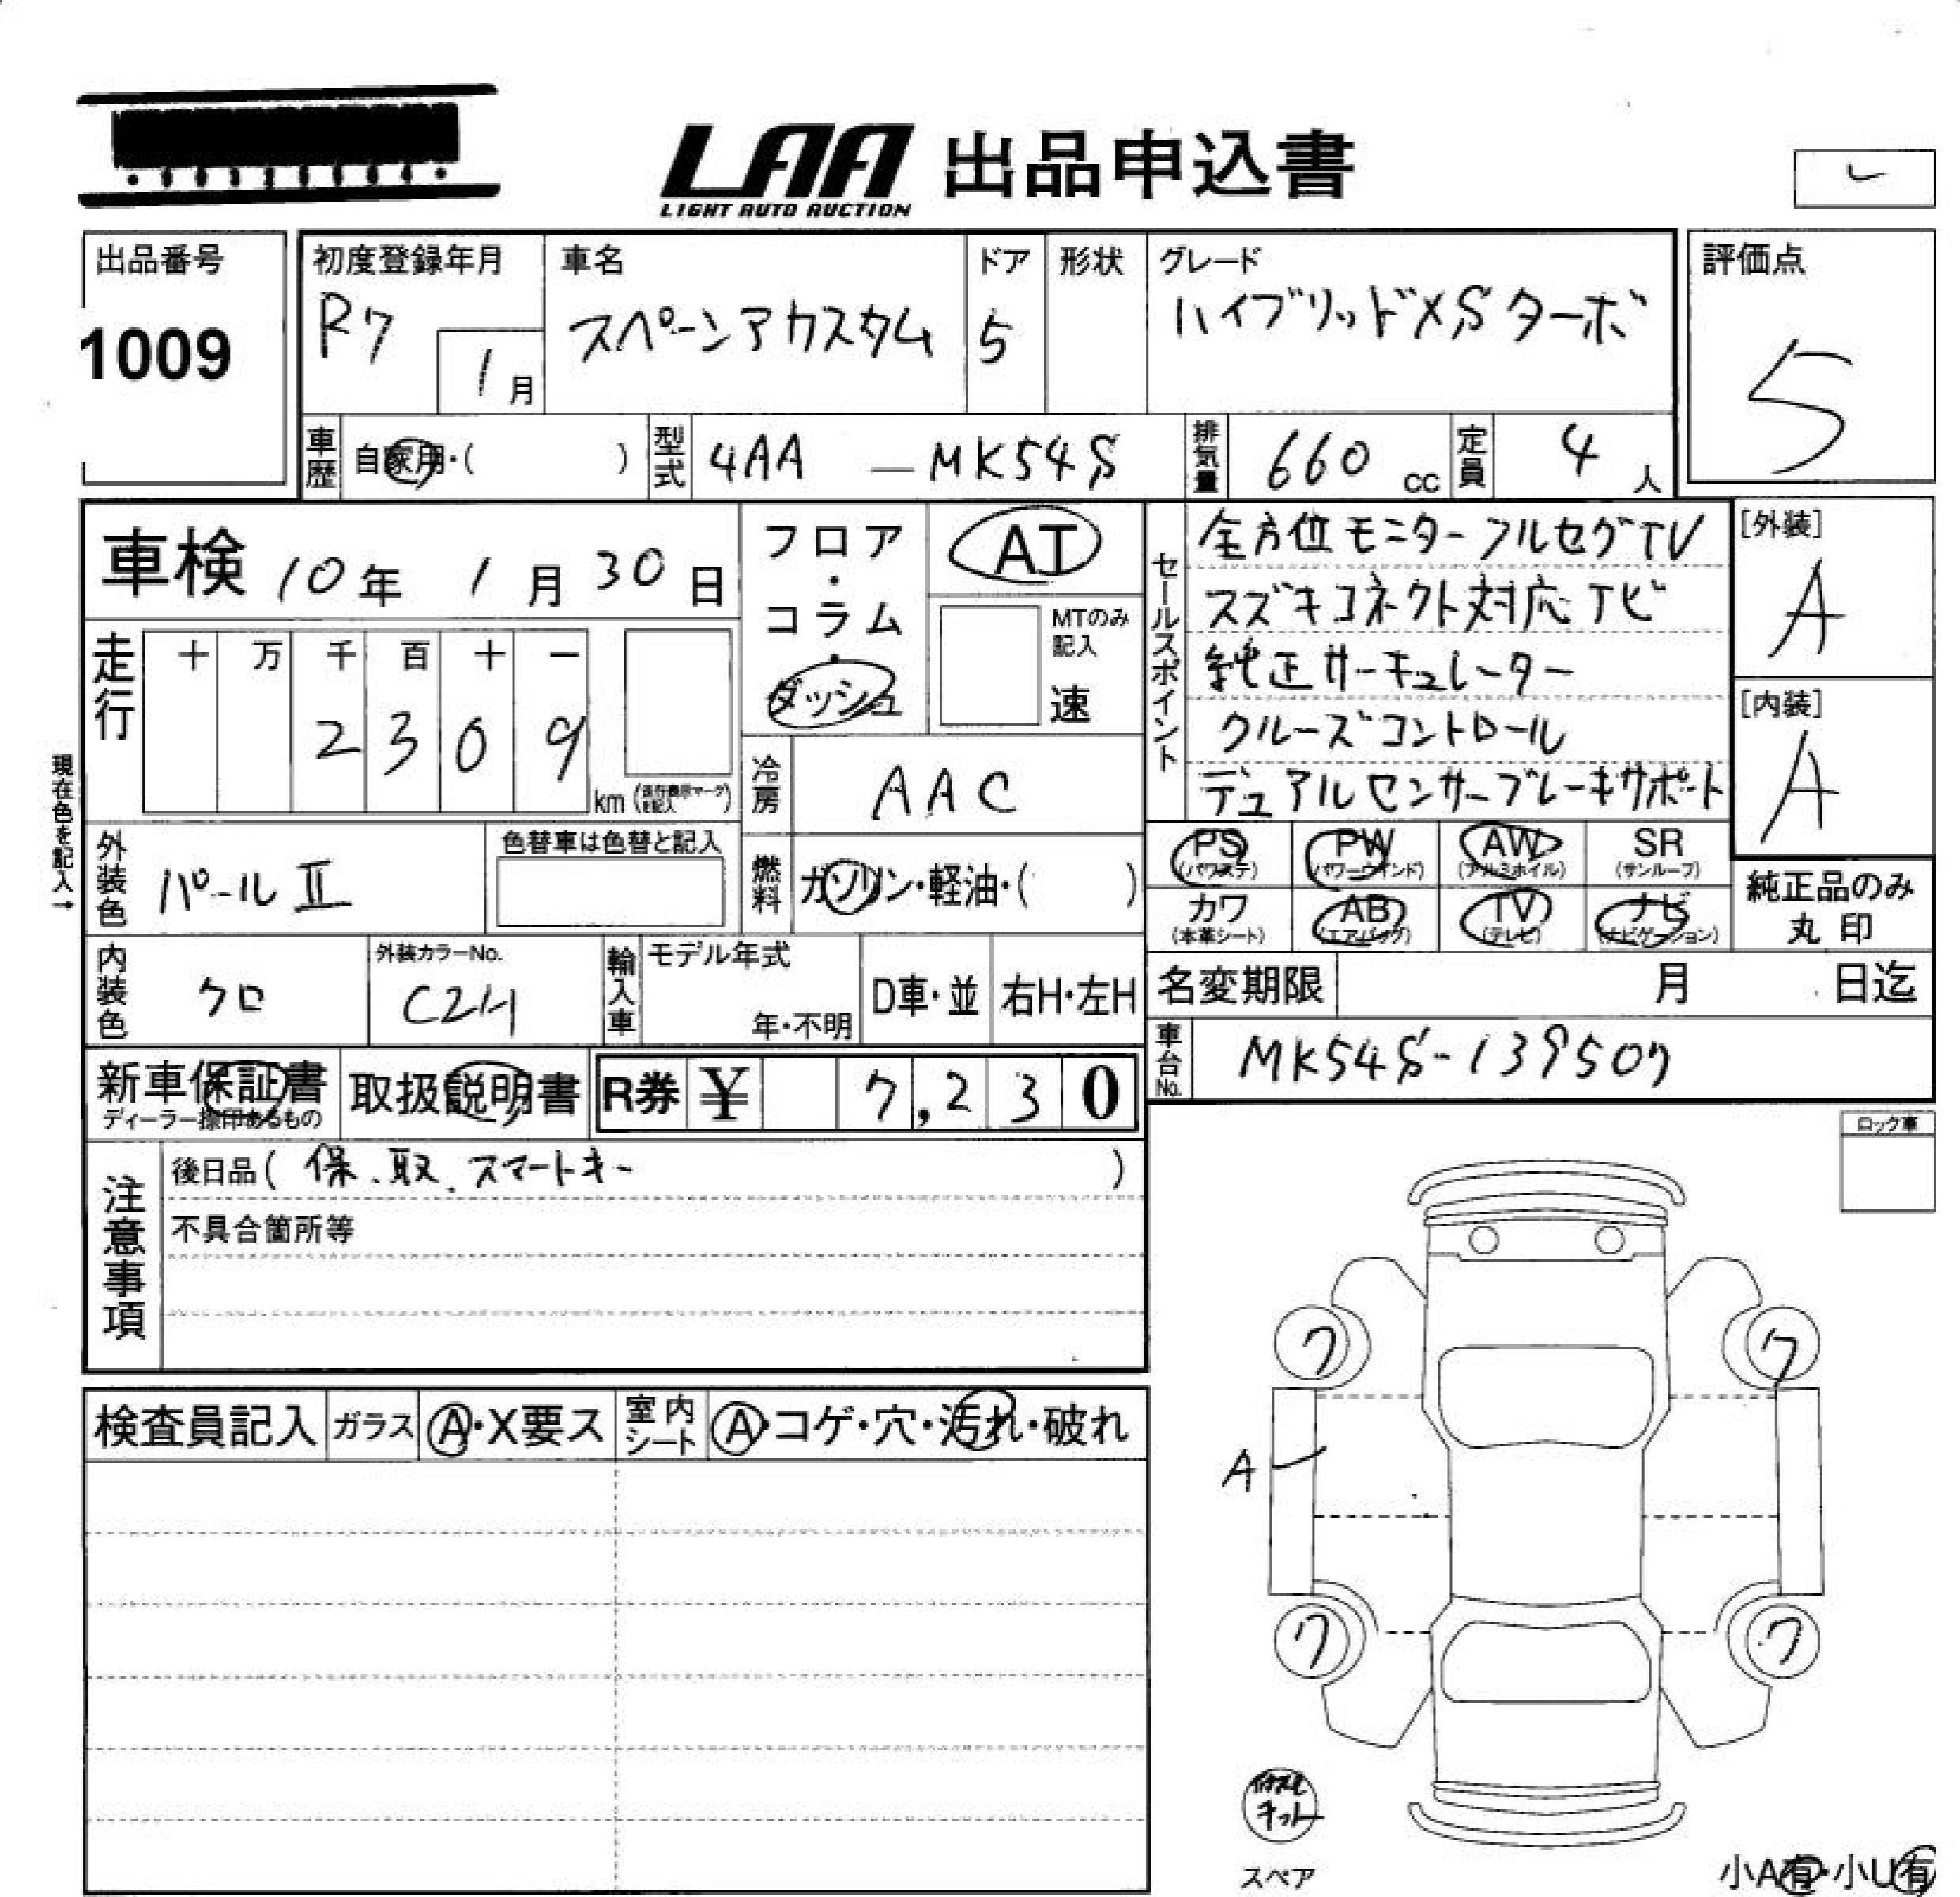 LAA 出品申込書
LIGHT AUTO AUCTION
レ
出品番号
1009
初度登録年月
R7
1月
車名
スペーシアカスタム
ドア
5
形状
グレード
ハイブリッドXSターボ
評価点
5
車歴
自家用・( )
型式
4AA — MK54S
排気量
660 cc
定員
4 人
車検 10年 1月 30日
走行
十 万 千 百 十 一
2 3 0 9
km (走行表示マークを記入)
現在色を記入→
フロア・コラム・ダッシュ
AT
MTのみ記入
速
冷房
AAC
セールスポイント
全方位モニター フルセグTV
スズキコネクト対応ナビ
純正サーキュレーター
クルーズコントロール
デュアルセンサーブレーキサポート
[外装]
A
[内装]
A
外装色
パールⅡ
色替車は色替と記入
燃料
ガソリン・軽油・( )
PS (パワステ)
PW (パワーウインド)
AW (アルミホイル)
SR (サンルーフ)
カワ (本革シート)
AB (エアバッグ)
TV (テレビ)
ナビ (ナビゲーション)
純正品のみ
丸印
内装色
クロ
外装カラーNo.
輸入車
モデル年式
年・不明
D車・並
右H・左H
名変期限 月 日迄
車台No.
MK54S-139507
新車保証書
ディーラー捺印あるもの
取扱説明書
R券 ¥ 7,230
ロック車
注意事項
後日品( 保、取、スマートキー )
不具合箇所等
検査員記入
ガラス
A・X要ス
室内シート
A・コゲ・穴・汚れ・破れ
ワ
ワ
A
ワ
ワ
キット
スペア
小A有・小U有